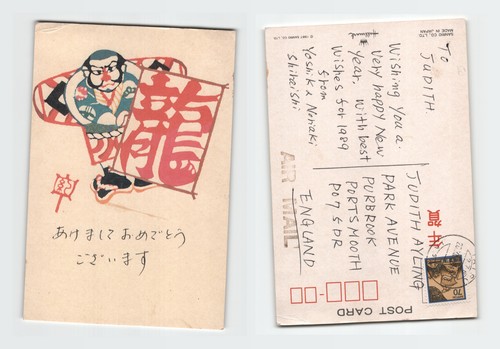 龍
あけまして おめでとう
ございます
SANRIO CO., LTD.
MADE IN JAPAN
Hallmark
© 1987 SANRIO CO., LTD.
To
JUDITH.
Wishing you a
very happy New
Year. With best
wishes for 1989
from
Yoshi & Noriaki
Shiraishi
AIR MAIL
年賀
JUDITH AYLING
PARK AVENUE
PURBROOK
PORTSMOOTH
PO7 5DR
ENGLAND
POST CARD
70